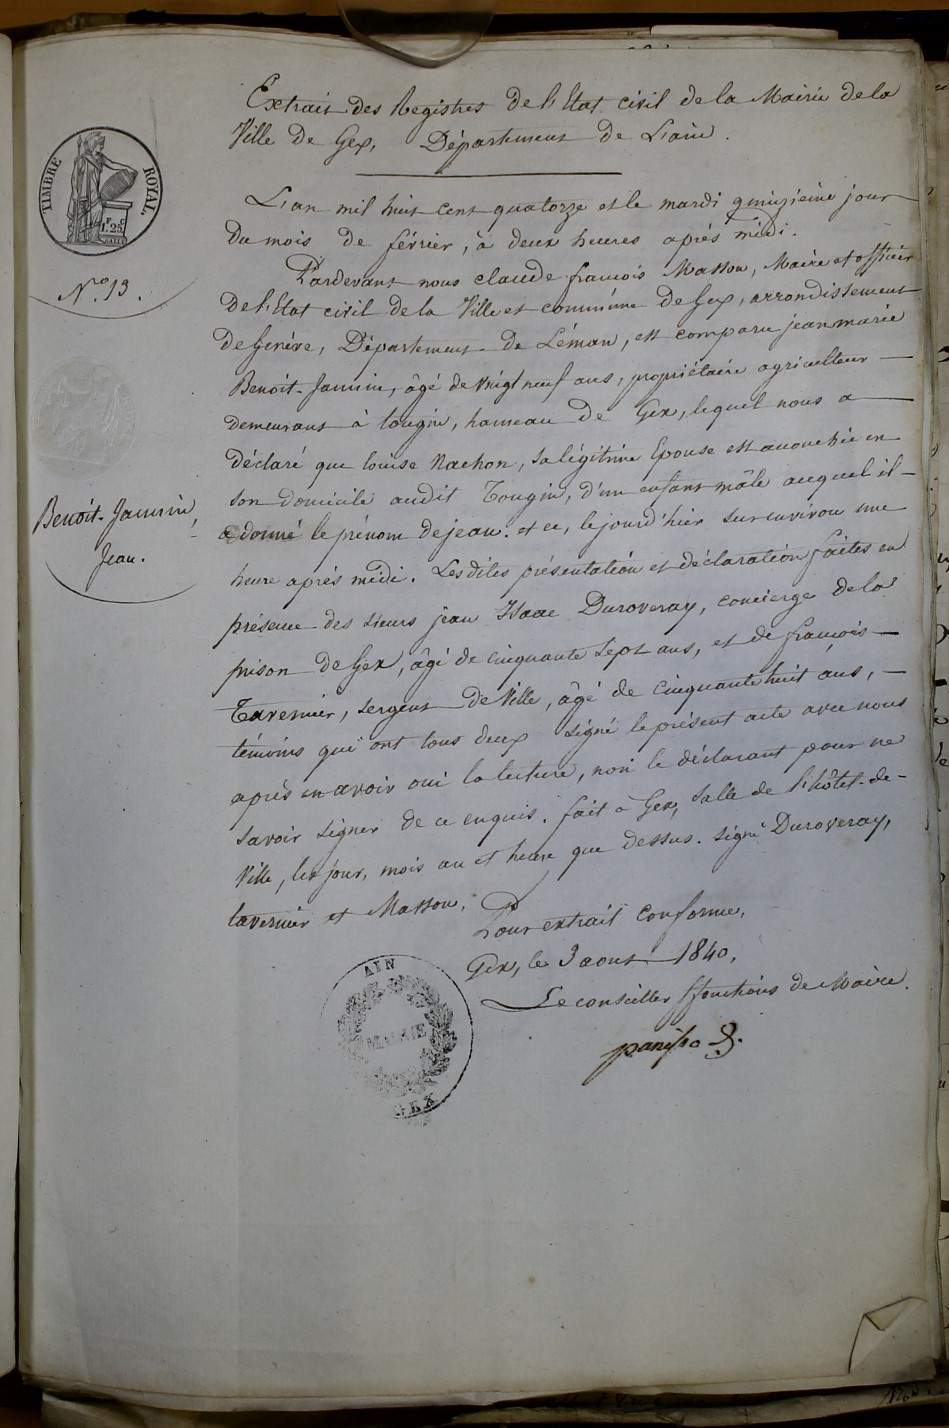 Extrait des Registres de l'Etat civil de la Mairie de la
Ville de Gex, Département de L'ain.
TIMBRE ROYAL.
1F.25C
N.º 13.
L'an mil huit cent quatorze et le mardi quinzieme jour
du mois de février, à deux heures aprés midi.
Pardevant nous claude françois Masson, Maire et officier
de l'Etat civil de la Ville et commune de Gex, arrondissement
de Genève, Département de Léman, est comparu jean marie
Benoit-Jannin, âgé de vingt neuf ans, propriétaire agriculteur
demeurant à tougin, hameau de Gex, lequel nous a
déclaré que louise Nachon, sa légitime Epouse est accouchée en
son domicile audit Tougin, d'un enfant mâle auquel il
a donné le prénom de jean. et ce, le jourd'hier sur environ une
heure aprés midi. Les dites présentation et déclaration faites en
Benoit-Jannin,
Jean.
présence des sieurs jean Isaac Duroveray, concierge de la
prison de Gex, âgé de cinquante sept ans, et de françois
Tavernier, sergent de Ville, âgé de cinquante huit ans,
témoins qui ont tous deux signé le présent acte avec nous
aprés en avoir oui la lecture, non le déclarant pour ne
savoir signer de ce enquis. fait à Gex, salle de l'hôtel-de-
Ville, les jour, mois an et heure que dessus. signé Duroveray,
tavernier et Masson.
Pour extrait conforme,
Gex, le 3 aout 1840,
Le conseiller ff fonctions de Maire.
panisso
AIN
MAIRIE
GEX